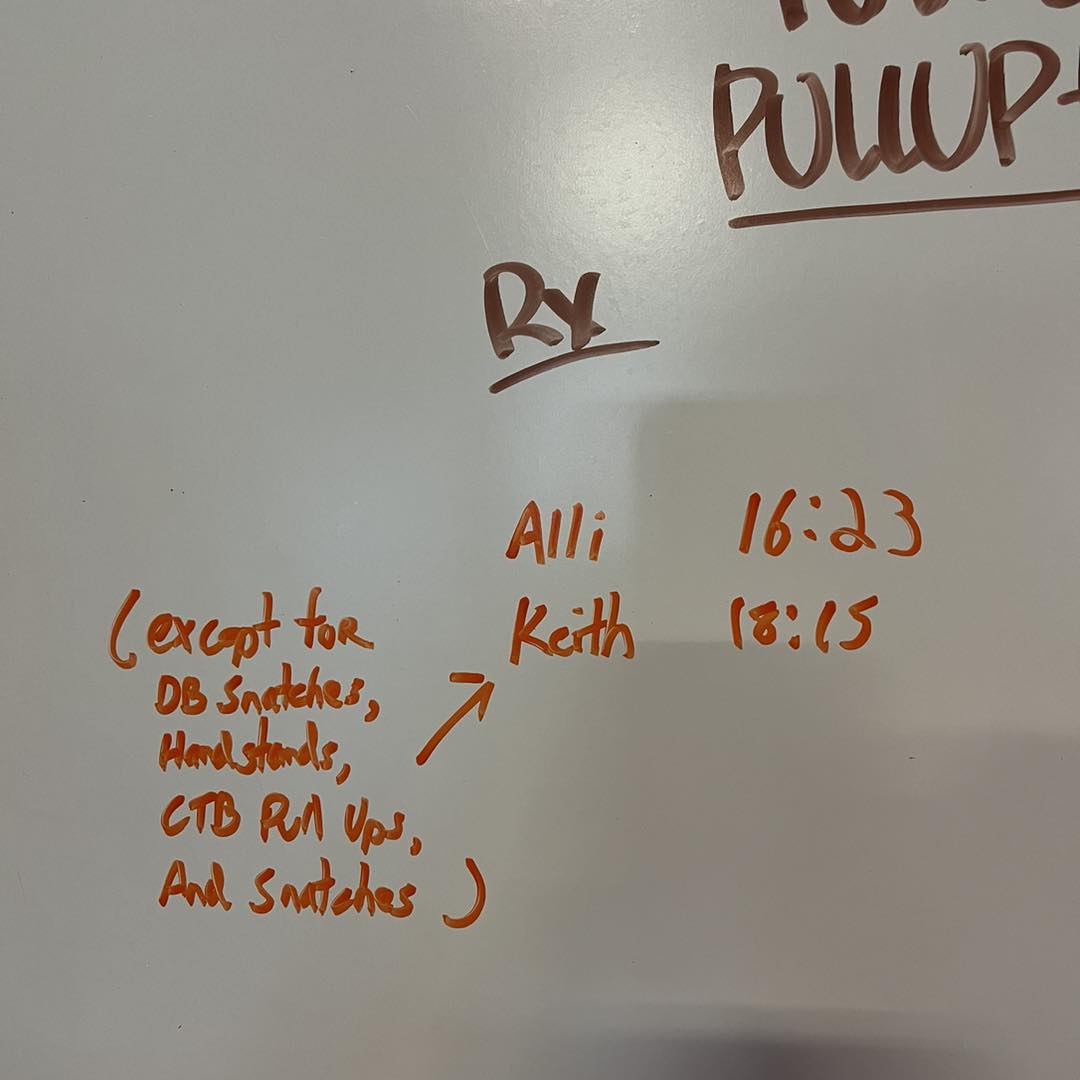 PULLUP
Rx
Alli 16:23
Keith 18:15
(except for
DB Snatches,
Handstands,
CTB Pull Ups,
And Snatches)